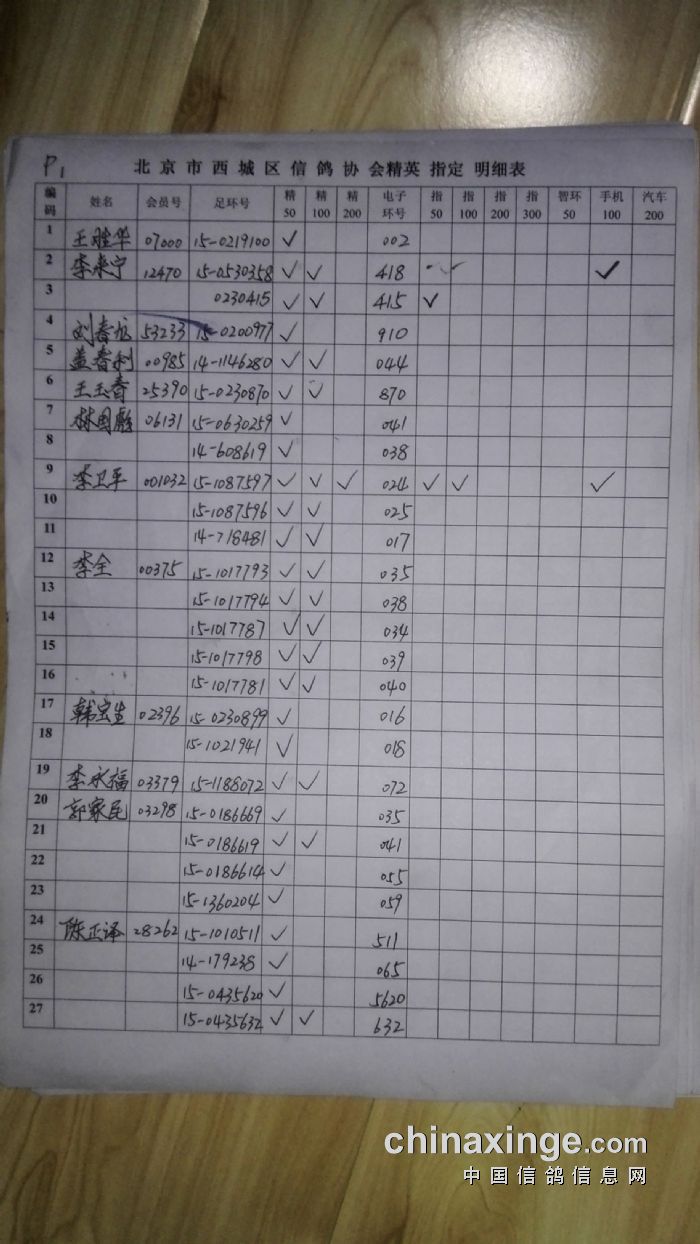 P1
北京市西城区信鸽协会精英 指定 明细表
编码 姓名 会员号 足环号 精50 精100 精200 电子环号 指50 指100 指200 指300 智环50 手机100 汽车200
1 王胜华 07000 15-0219100 ✓ 002
2 李来宁 12470 15-0530358 ✓ ✓ 418 ✓
3 0230415 ✓ ✓ 415 ✓
4 刘春旭 53233 15-0200977 ✓ 910
5 盖春利 00985 14-1146280 ✓ ✓ 044
6 王玉春 25390 15-0230870 ✓ ✓ 870
7 林国彪 06131 15-0630259 ✓ 041
8 14-608619 ✓ 038
9 李卫平 001032 15-1087597 ✓ ✓ ✓ 024 ✓ ✓ ✓
10 15-1087596 ✓ ✓ 025
11 14-718481 ✓ ✓ 017
12 李全 00375 15-1017793 ✓ ✓ 035
13 15-1017794 ✓ ✓ 038
14 15-1017787 ✓ ✓ 034
15 15-1017798 ✓ ✓ 039
16 15-1017781 ✓ ✓ 040
17 韩宝生 02396 15-0230899 ✓ 016
18 15-1021941 ✓ 018
19 李永福 03379 15-1188072 ✓ ✓ 072
20 郭家民 03298 15-0186669 ✓ 035
21 15-0186619 ✓ ✓ 041
22 15-0186614 ✓ 055
23 15-1360204 ✓ 059
24 陈正译 28262 15-1010511 ✓ 511
25 14-179238 ✓ 065
26 15-0435620 ✓ 5620
27 15-0435632 ✓ ✓ 632
chinaxinge.com
中国信鸽信息网